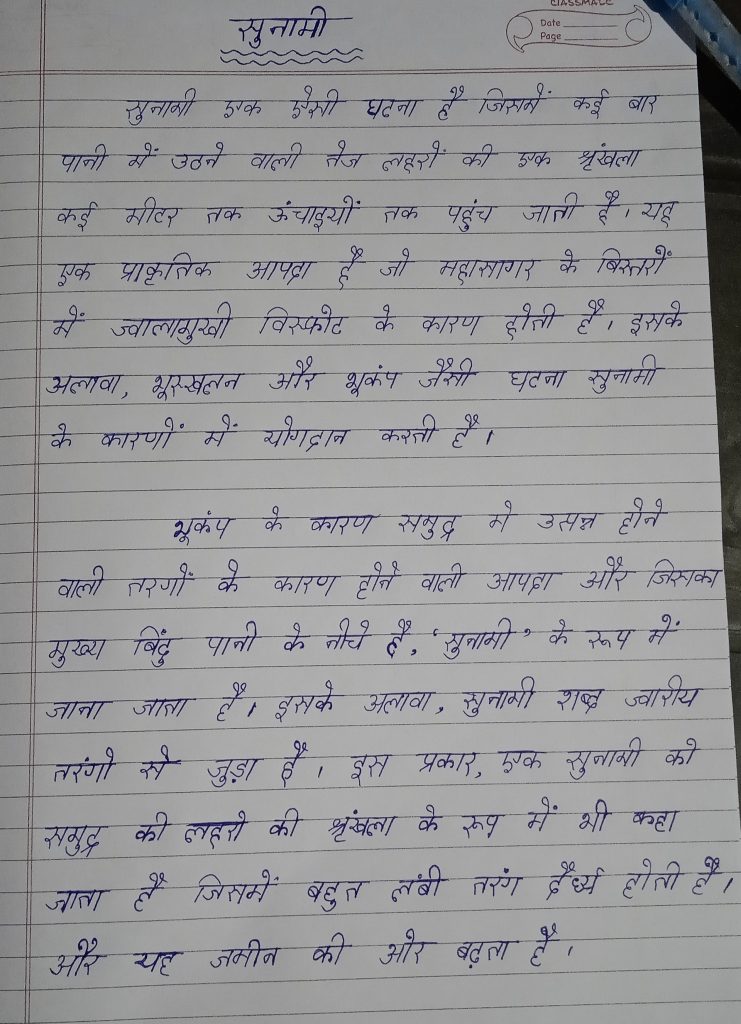 CLASSMATE
Date
Page
सुनामी
सुनामी एक ऐसी घटना है जिसमें कई बार
पानी में उठने वाली तेज लहरों की एक श्रृंखला
कई मीटर तक ऊंचाइयों तक पहुंच जाती है। यह
एक प्राकृतिक आपदा है जो महासागर के बिस्तरों
में ज्वालामुखी विस्फोट के कारण होती है। इसके
अलावा, भूस्खलन और भूकंप जैसी घटना सुनामी
के कारणों में योगदान करती है।
भूकंप के कारण समुद्र मे उत्पन्न होने
वाली तरगों के कारण होने वाली आपदा और जिसका
मुख्य बिंदु पानी के नीचे है, 'सुनामी' के रूप में
जाना जाता है। इसके अलावा, सुनामी शब्द ज्वारीय
तरंगो से जुड़ा है। इस प्रकार, एक सुनामी को
समुद्र की लहरो की श्रृंखला के रूप में भी कहा
जाता है जिसमें बहुत लंबी तरंग दैर्ध्य होती है।
और यह जमीन की ओर बढ़ता है।